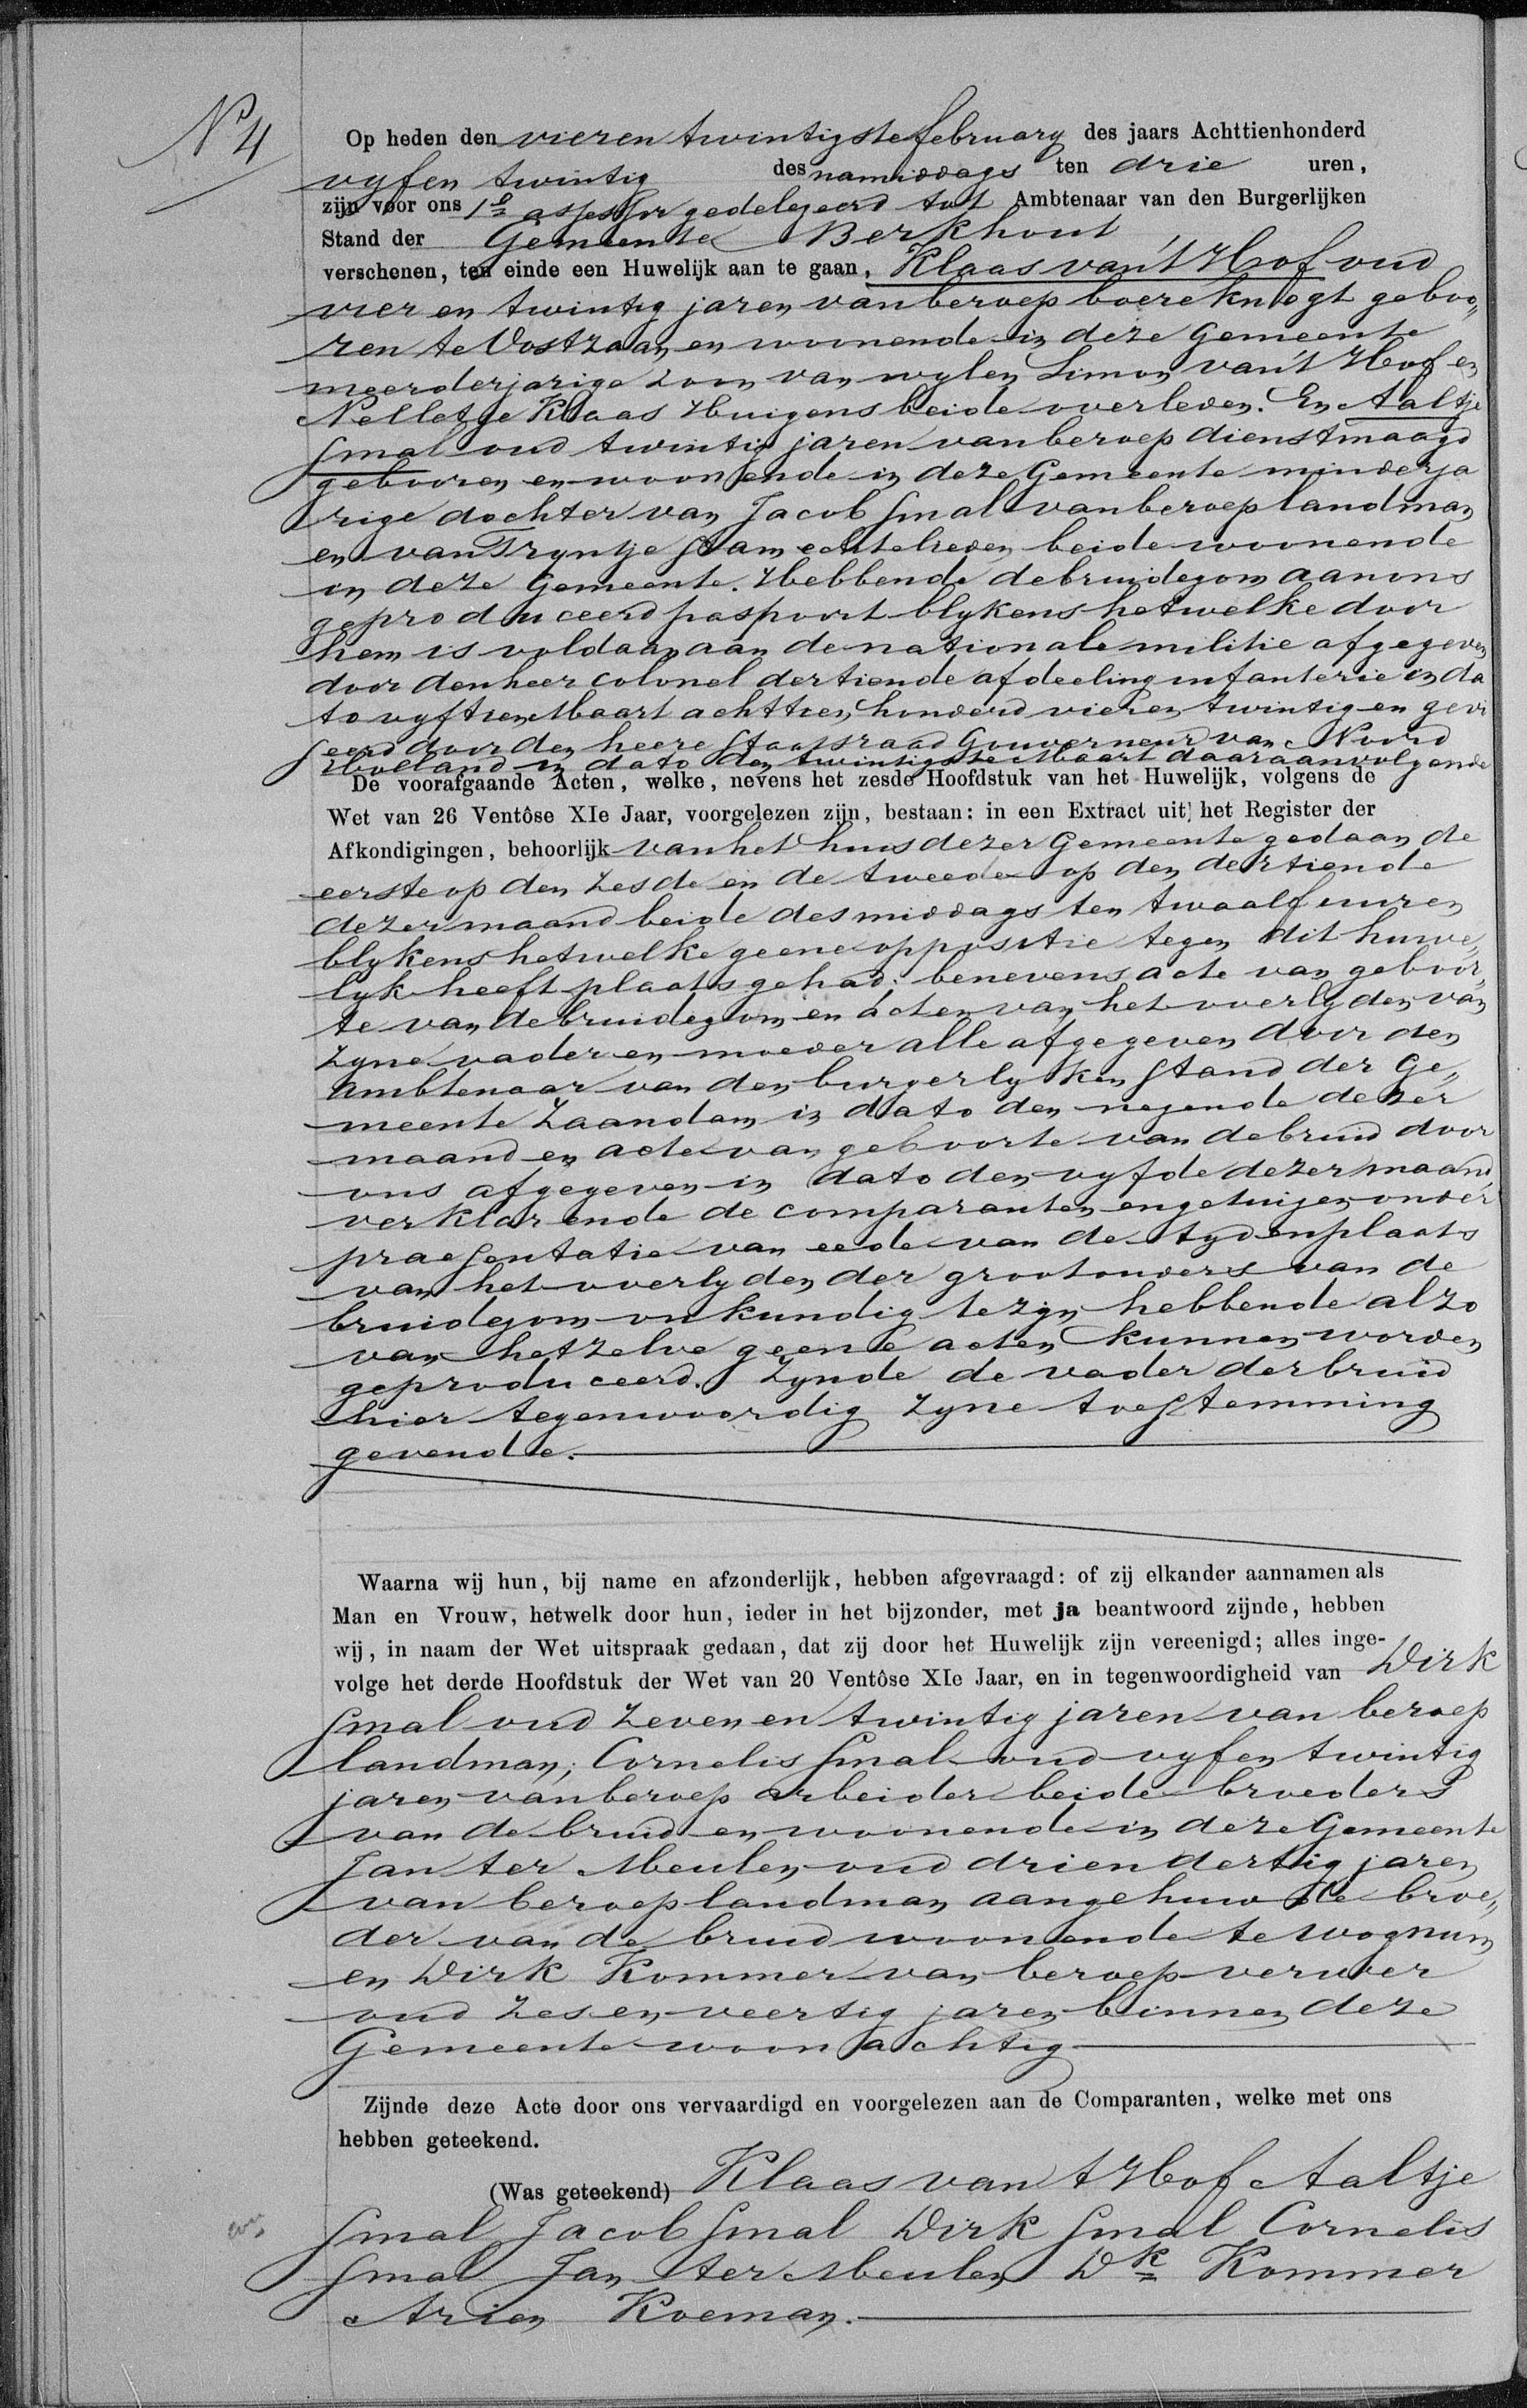 No 4
Op heden den vieren twintigste february des jaars Achttienhonderd
vyfen twintig des namiddags ten drie uren,
zijn voor ons 1e assessor gedelegeerd tot Ambtenaar van den Burgerlijken
Stand der Gemeente Berkhout
verschenen, ten einde een Huwelijk aan te gaan, Klaas van 't Hof oud
vier en twintig jaren van beroep boereknegt geboo„
ren te Oostzaan en woonende in deze Gemeente
meerderjarige zoon van wylen Simon van 't Hof en
Nelletje Klaas Huigens beide overleden. En Aaltje
Smal oud twintig jaren van beroep dienstmaagd
gebooren en woonende in deze Gemeente minderja
rige dochter van Jacob Smal van beroep landman
en van Tryntje Stam echtelieden beide woonende
in deze Gemeente. Hebbende de bruidegom aan ons
geproduceerd paspoort blykens hetwelke door
hem is voldaan aan de nationale militie afgegeven
door den heer colonel der tiende afdeeling infanterie in da
to vyftien Maart achttien honderd vieren twintig en gevi
seerd door den heere Staatsraad Gouverneur van Noord
Holland in dato den twintigste Maart daaraanvolgende
De voorafgaande Acten, welke, nevens het zesde Hoofdstuk van het Huwelijk, volgens de
Wet van 26 Ventôse XIe Jaar, voorgelezen zijn, bestaan: in een Extract uit het Register der
Afkondigingen, behoorlijk van het huis dezer Gemeente gedaan de
eerste op den zesde en de tweede op den dertiende
dezer maand beide des middags ten twaalf uuren
blykens hetwelke geene oppositie tegen dit huwe„
lyk heeft plaats gehad; benevens acte van geboor„
te van de bruidegom en acten van het overlyden van
zyne vader en moeder alle afgegeven door den
Ambtenaar van den burgerlyken Stand der Ge„
meente Zaandam in dato den negende dezer
maand en acte van geboorte van de bruid door
ons afgegeven in dato den vyfde dezer maand,
verklarende de comparanten en getuigen onder
praesentatie van eede van de tyd en plaats
van het overlyden der grootouders van de
bruidegom onkundig te zyn hebbende alzo
van hetzelve geene acten kunnen worden
geproduceerd. Zynde de vader der bruid
hier tegenwoordig zyne toestemming
gevende.
Waarna wij hun, bij name en afzonderlijk, hebben afgevraagd: of zij elkander aannamen als
Man en Vrouw, hetwelk door hun, ieder in het bijzonder, met ja beantwoord zijnde, hebben
wij, in naam der Wet uitspraak gedaan, dat zij door het Huwelijk zijn vereenigd; alles inge-
volge het derde Hoofdstuk der Wet van 20 Ventôse XIe Jaar, en in tegenwoordigheid van Dirk
Smal oud zeven en twintig jaren van beroep
landman; Cornelis Smal oud vyfen twintig
jaren van beroep arbeider beide broeders
van de bruid en woonende in deze Gemeente
Jan ter Meulen oud drien dertig jaren
van beroep landman aangehuwde broe„
der van de bruid woonende te Wognum
en Dirk Kommer van beroep verwer
oud zes en veertig jaren binnen deze
Gemeente woonachtig
Zijnde deze Acte door ons vervaardigd en voorgelezen aan de Comparanten, welke met ons
hebben geteekend.
(Was geteekend) Klaas van t Hof Aaltje
Smal Jacob Smal Dirk Smal Cornelis
Smal Jan ter Meulen Dk Kommer
Arien Koeman.